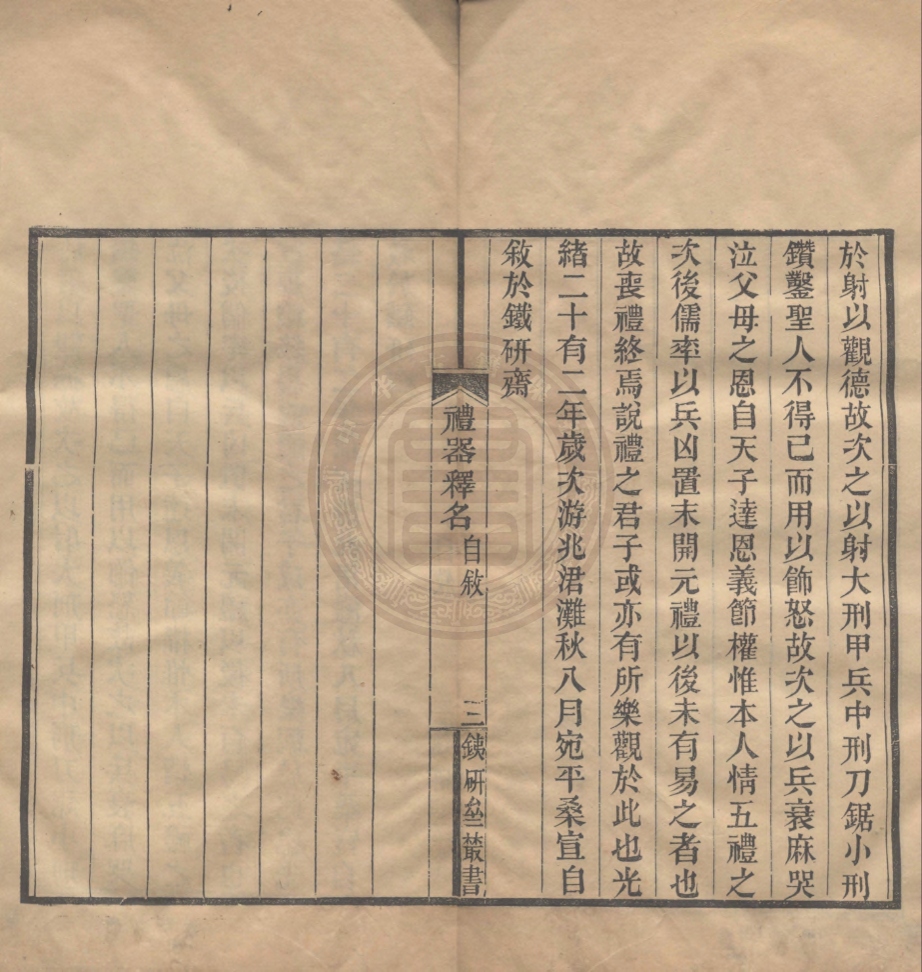 於射以觀德故次之以射大刑甲兵中刑刀鋸小刑
鑽鑿聖人不得已而用以飾怒故次之以兵衰麻哭
泣父母之恩自天子達恩義節權惟本人情五禮之
次後儒率以兵凶置末開元禮以後未有易之者也
故喪禮終焉說禮之君子或亦有所樂觀於此也光
緒二十有二年歲次游兆涒灘秋八月宛平桑宣自
敘於鐵研齋
禮器釋名 自敘 三 銕研𡎺叢書